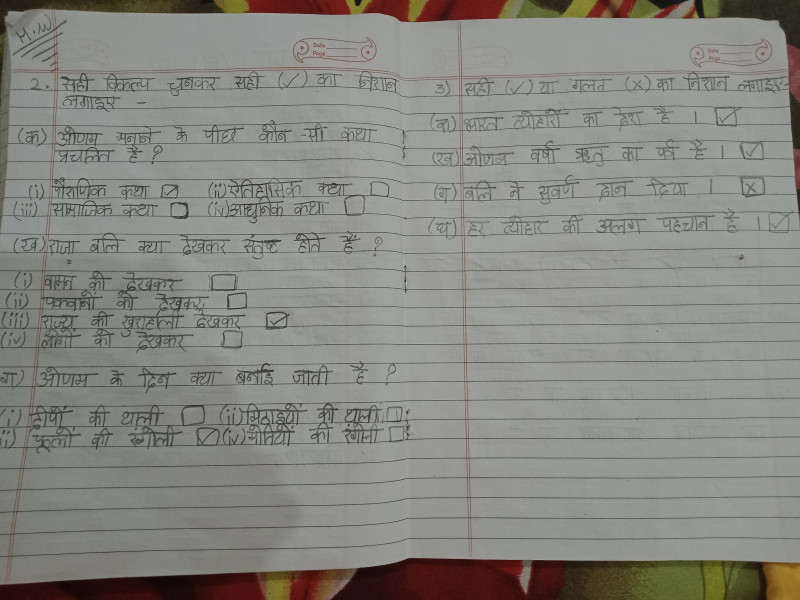 H.W
Date
Page
2. सही विकल्प चुनकर सही (✓) का निशान
लगाइए -
(क) ओणम मनाने के पीछे कौन-सी कथा
प्रचलित है ?
(i) पौराणिक कथा ☑ (ii) ऐतिहासिक कथा ☐
(iii) सामाजिक कथा ☐ (iv) आधुनिक कथा ☐
(ख) राजा बलि क्या देखकर संतुष्ट होते हैं ?
(i) वामन को देखकर ☐
(ii) पकवानों को देखकर ☐
(iii) राज्य की खुशहाली देखकर ☑
(iv) लोगों को देखकर ☐
ग) ओणम के दिन क्या बनाई जाती है ?
(i) दीपों की थाली ☐ (ii) मिठाइयों की थाली ☐
ii) फूलों की रंगोली ☑ (iv) मोतियों की रंगोली ☐
Date
Page
3) सही (✓) या गलत (x) का निशान लगाइए-
(क) भारत त्योहारों का देश है । ☑
(ख) ओणम वर्षा ऋतु का पर्व है । ☑
(ग) बलि ने सुवर्ण दान दिया । ☒
(घ) हर त्योहार की अलग पहचान है । ☑